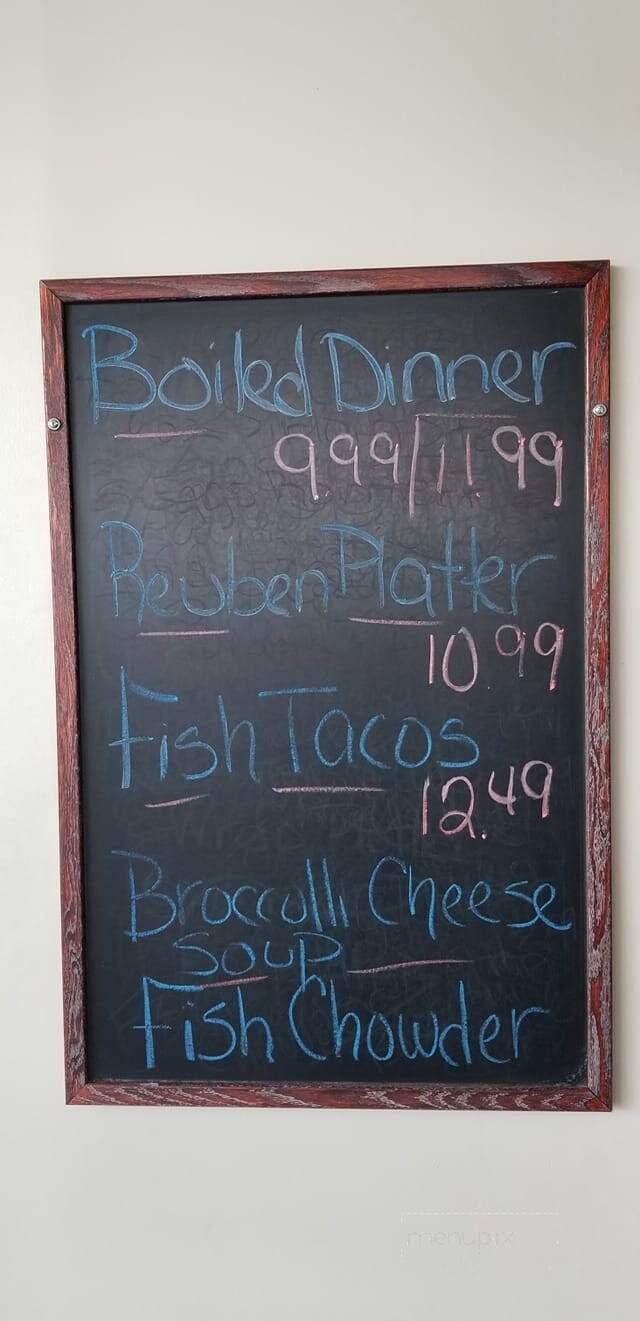 Boiled Dinner
9.99/11.99
Reuben Platter
10.99
Fish Tacos
12.49
Broccolli Cheese
Soup
Fish Chowder
menupix